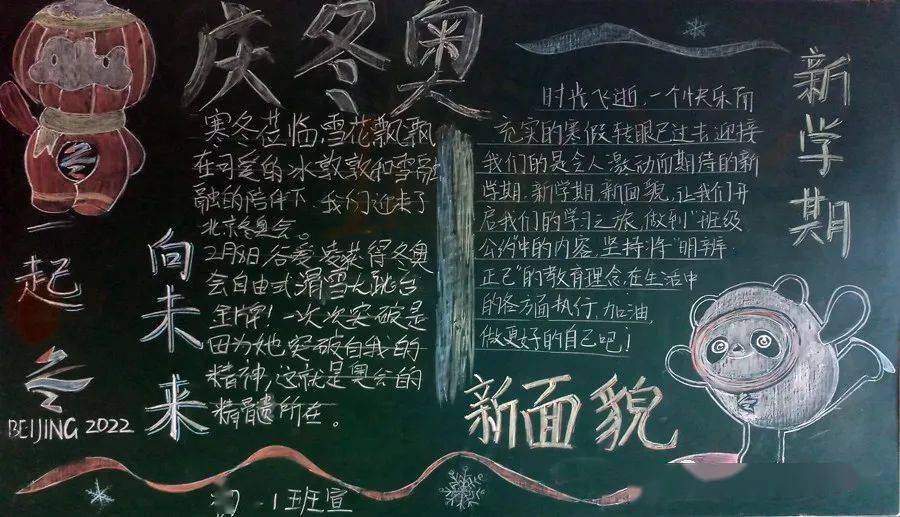 庆冬奥
寒冬莅临,雪花飘飘
在可爱的冰敦敦和雪融
融的陪伴下,我们迎来了
北京冬奥会。
2月8日,谷爱凌获得冬奥
会自由式滑雪大跳台
金牌!一次次突破是
因为她突破自我的
精神,这就是奥会的
精髓所在。
一起
向未来
BEIJING 2022
新学期
时光飞逝,一个快乐而
充实的寒假转眼已过去,迎接
我们的是令人激动而期待的新
学期。新学期,新面貌,让我们开
启我们的学习之旅,做到“班级
公约”中的内容,坚持将“明辨·
正己”的教育理念,在生活中
的各方面执行,加油,
做更好的自己吧!
新面貌
1班宣